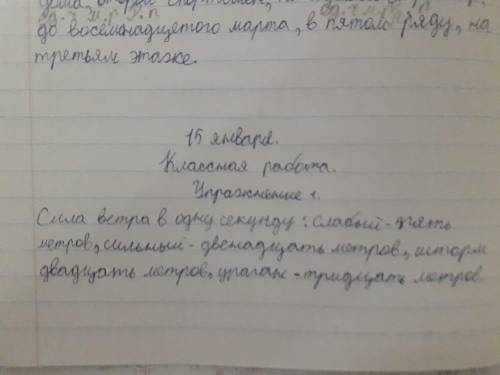 дома, второй спортсмен,
ед.ч м.р П.п
до восемнадцатого марта, в пятом ряду, на
третьем этаже.
15 января.
Классная работа.
Упражнение 1.
Сила ветра в одну секунду: слабый - пять
метров, сильный - двенадцать метров, шторм
двадцать метров, ураган - тридцать метров